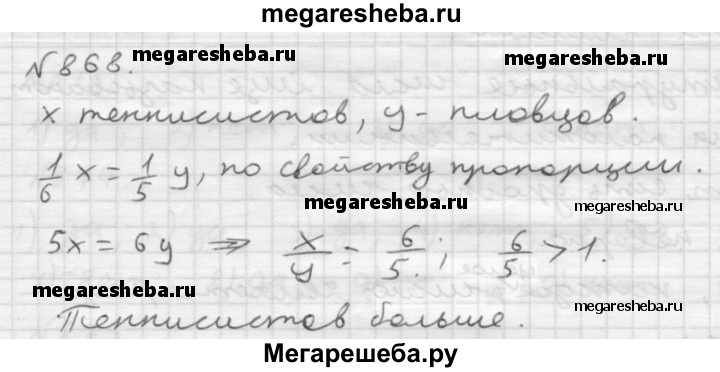 megaresheba.ru
№868. megaresheba.ru megaresheba.ru
x теннисистов, y - пловцов.
1/6 x = 1/5 y, по свойству пропорции.
megaresheba.ru megaresheba.ru
5x = 6y ⇒ x/y = 6/5; 6/5 > 1.
megaresheba.ru megaresheba.ru
Теннисистов больше.
Мегарешеба.ру